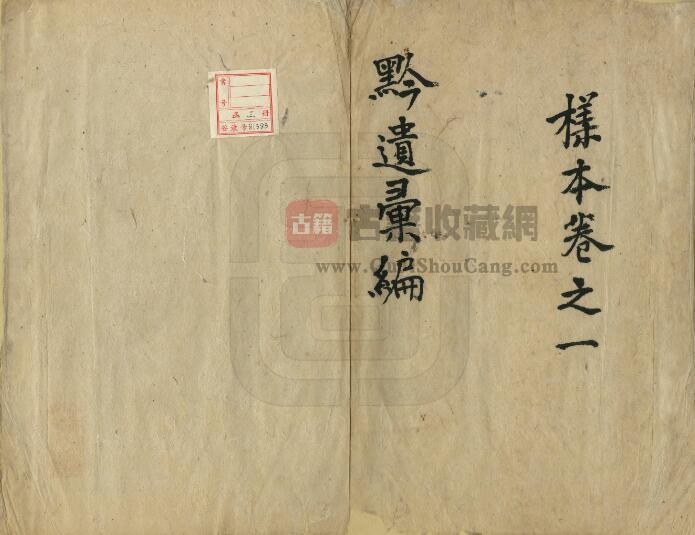 樣本卷之一
黔遺彙編
書
号
函 三 册
登录号
古籍
古籍收藏網
www.GujiShouCang.com